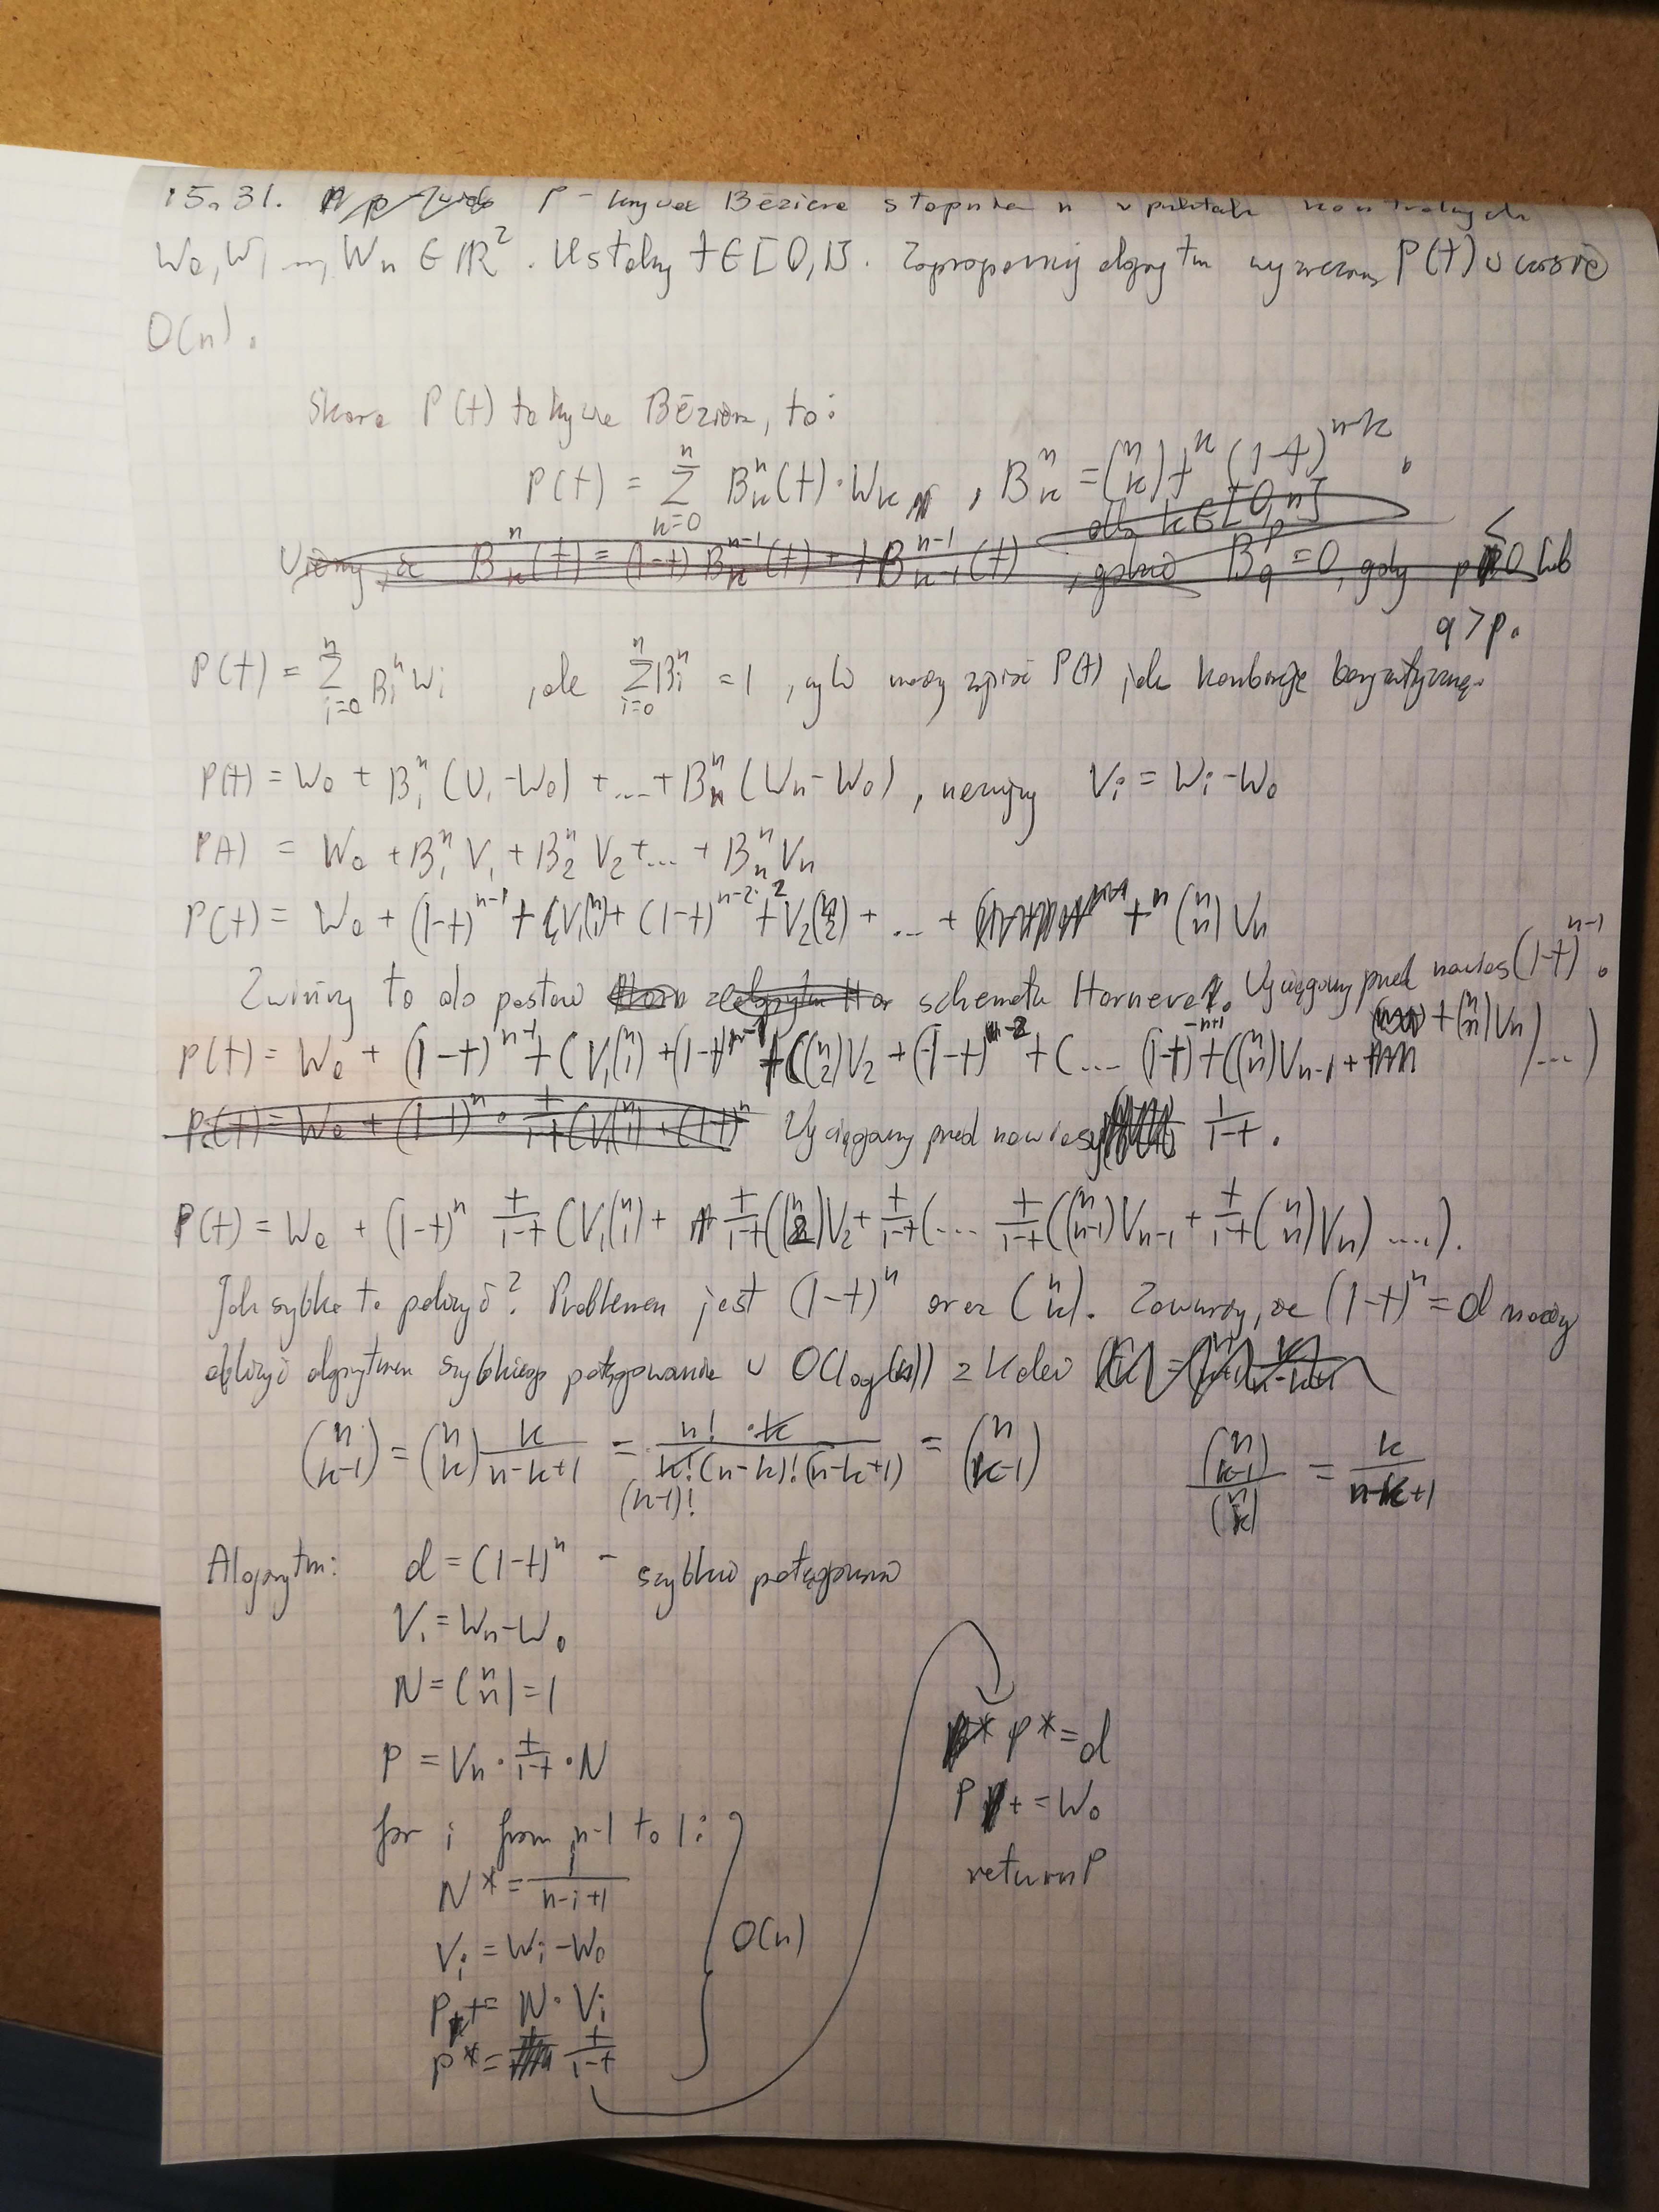 15.31. P - krzywa Béziera stopnia n o punktach kontrolnych
W₀, W₁ ..., Wₙ ∈ ℝ². Ustalmy t ∈ [0,1]. Zaproponuj algorytm P(t) w czasie
O(n).
Skoro P(t) to krzywa Béziera, to:
P(t) = Σ_{k=0}^{n} B_k^n(t)·W_k, B_k^n = (n k) t^k (1-t)^{n-k}.
B_k^n(t) = (1-t) B_k^{n-1}(t) + t B_{k-1}^{n-1}(t), gdzie B_q^p = 0, gdy p < 0 lub
q > p.
P(t) = Σ_{i=0}^{n} B_i^n W_i , ale Σ_{i=0}^{n} B_i^n = 1, czyli P(t) jako kombinację barycentryczną.
P(t) = W₀ + B₁ⁿ (W₁ - W₀) + ... + Bₙⁿ (Wₙ - W₀), nazwijmy Vᵢ = Wᵢ - W₀
P(t) = W₀ + B₁ⁿ V₁ + B₂ⁿ V₂ + ... + Bₙⁿ Vₙ
P(t) = W₀ + (1-t)^{n-1} t V₁(n 1) + (1-t)^{n-2} t² V₂(n 2) + ... + tⁿ (n n) Vₙ
Zwińmy to do postaci schematu Hornera. Wyciągamy przed nawias (1-t)^{n-1}.
P(t) = W₀ + (1-t)^{n-1} t (V₁(n 1) + (1-t)^{-1} t ((n 2)V₂ + (1-t) t (... (1-t) t ((n n)V_{n-1} + t (n n)Vₙ) ...)
Wyciągamy przed nawiasy 1/(1-t).
P(t) = W₀ + (1-t)ⁿ t/(1-t) (V₁(n 1) + t/(1-t) ((n 2)V₂ + t/(1-t) (... t/(1-t) ((n n-1)V_{n-1} + t/(1-t) (n n)Vₙ) ....).
Jak szybko to policzyć? Problemem jest (1-t)ⁿ oraz (n k). Zauważmy, że (1-t)ⁿ = d możemy
obliczyć algorytmem szybkiego potęgowania w O(log(n)) z kolei
(n k-1) = (n k) k/(n-k+1) = n!·k / (k!(n-k)!(n-k+1)) = (n k-1) (n k-1)/(n k) = k/(n-k+1)
(n-1)!
Algorytm: d = (1-t)ⁿ - szybkie potęgowanie
Vᵢ = Wₙ - W₀
N = (n n) = 1
P = Vₙ · t/(1-t) · N
for i from n-1 to 1:
N *= i/(n-i+1)
Vᵢ = Wᵢ - W₀
P += N · Vᵢ
P *= t/(1-t)
O(n)
P *= d
P += W₀
return P